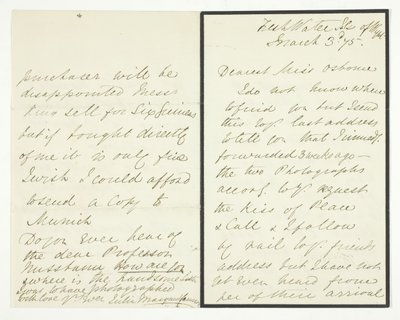 Fresh Water I. of Wight
March 3d 75.
Dearest Miss Osborne
I do not know where
to find you but I send
this to yr last address
to tell you that I immedy.
forwarded 3 weeks ago —
the two Photographs
accordg to yr request
the Kiss of Peace
& Call & I follow
by rail to yr friends
address but I have not
yet even heard from
her of their arrival
purchaser will be
disappointed Messrs
sell for Six Guineas
but if bought directly
of me it is only five
I wish I could afford
to send a Copy to
Munich
Do you ever hear of
the dear Professor
Nussbaum How are you
& where is the handsome
I was to have photographed
with love yrs ever Julia Margaret Cameron